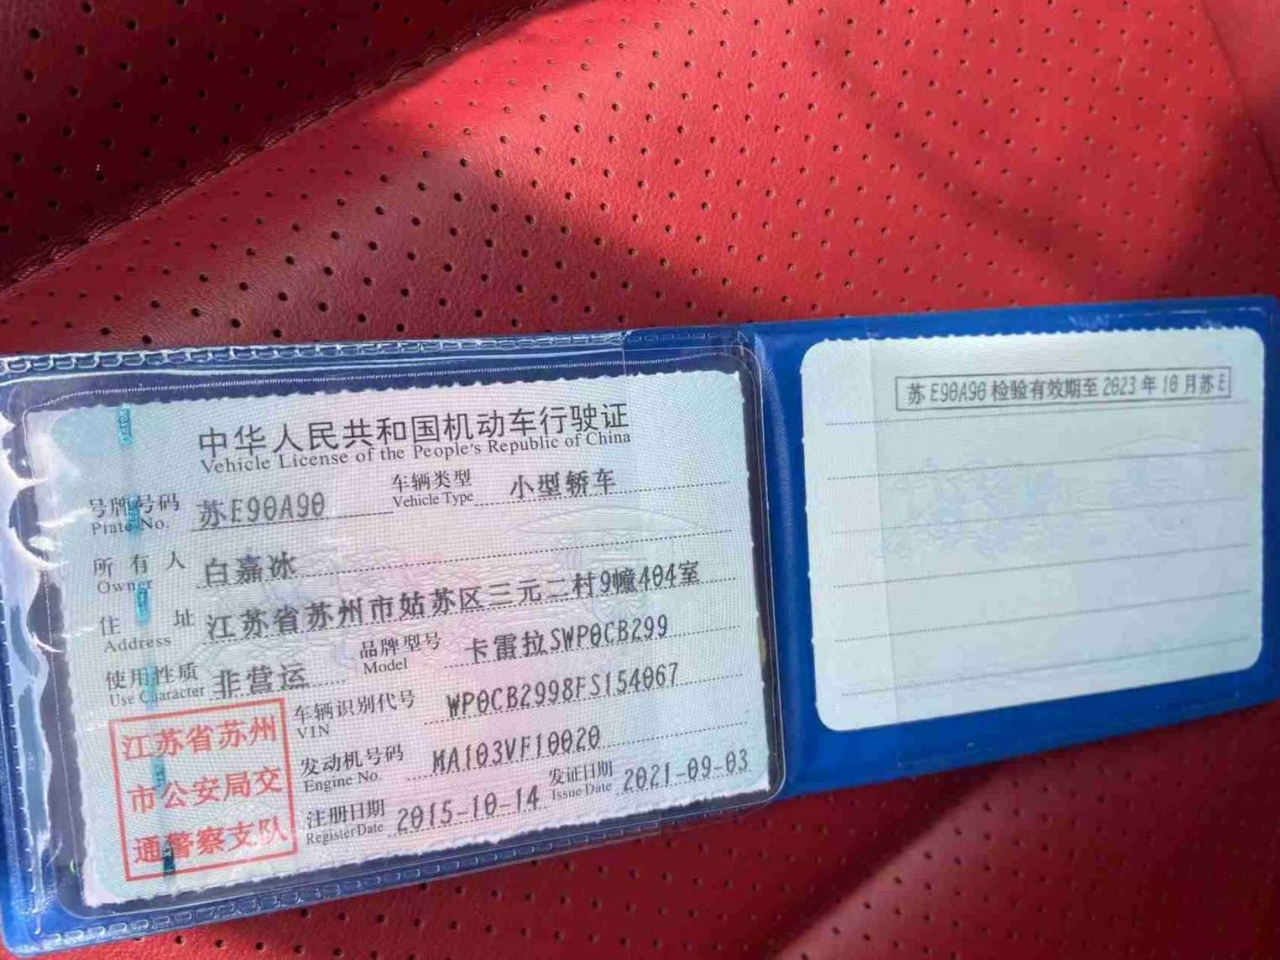 中华人民共和国机动车行驶证
Vehicle License of the People's Republic of China
号牌号码 苏E90A90 车辆类型 小型轿车
Plate No. Vehicle Type
所有人 白嘉冰
Owner
住址 江苏省苏州市姑苏区三元二村9幢404室
Address
使用性质 非营运 品牌型号 卡雷拉SWP0CB299
Use Character Model
车辆识别代号 WP0CB2998FS154067
VIN
发动机号码 MA103VF10020
Engine No.
注册日期 2015-10-14 发证日期 2021-09-03
Register Date Issue Date
江苏省苏州
市公安局交
通警察支队
苏E90A90检验有效期至2023年10月苏E